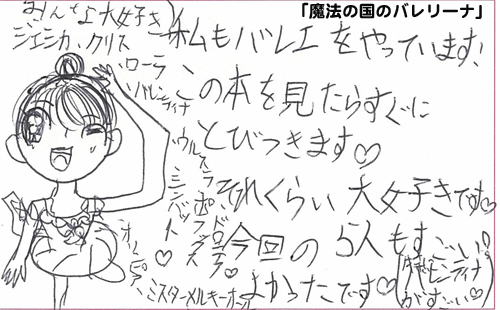 「魔法の国のバレリーナ」
みんな大好き
ジェシカ クリス
ローラ
バレンティナ
ウルスラ
ポラックス
ドロテア♡
シンバット♡
オリンピア
ミスターメルキオール
私もバレエをやっています、
この本を見たらすぐに
とびつきます♡
それくらい大好きです♡
今回の5人もすごい!!
よかったです♡
(特にティナ
がすごい♡)